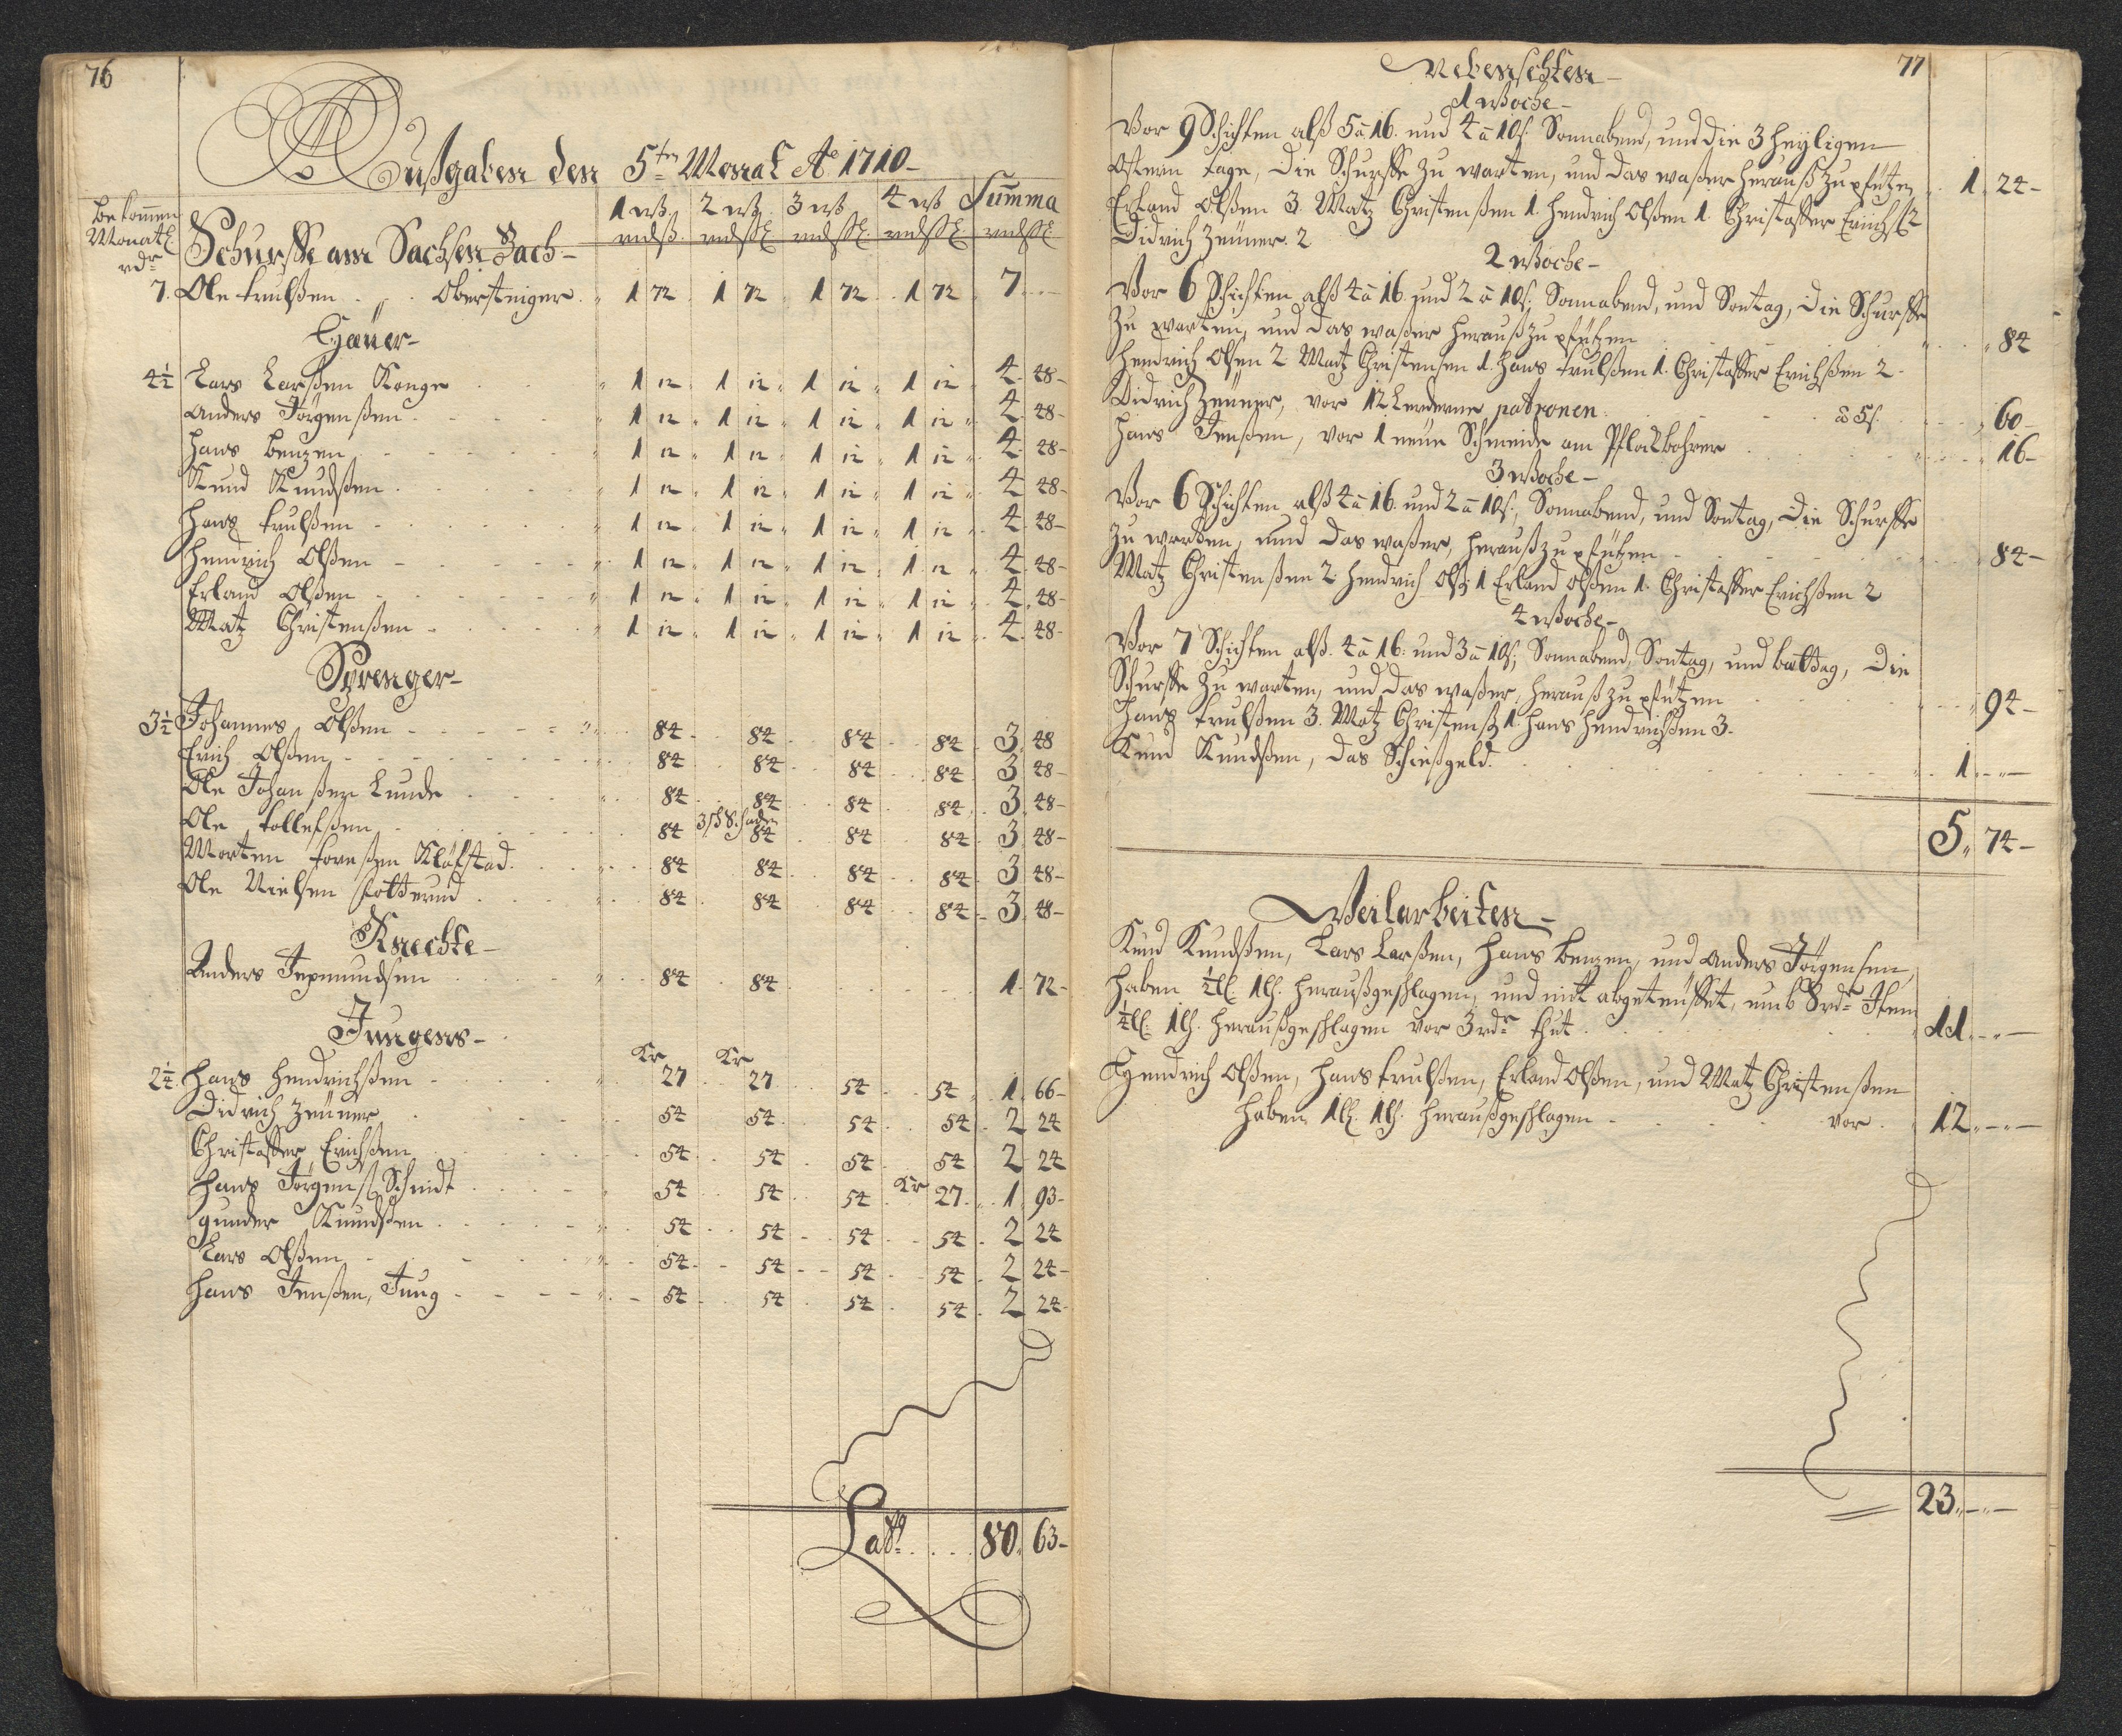 76
Außgaben den 5ten Monat Ao 1710
bekommen
Monatl
rdr
1 wß 2 wß 3 wß 4 wß Summa
Schurffe am Sachsen Bach
7. Ole trulßen Obersteiger 1 72 1 72 1 72 1 72 7
Häuer
4½ Lars Larßen Konge 1 12 1 12 1 12 1 12 4 48
Anders Jörgenßen 1 12 1 12 1 12 1 12 4 48
Hans Bentzen 1 12 1 12 1 12 1 12 4 48
Knud Knudßen 1 12 1 12 1 12 1 12 4 48
Hans trulßen 1 12 1 12 1 12 1 12 4 48
Hendrich Olßen 1 12 1 12 1 12 1 12 4 48
Erland Olßen 1 12 1 12 1 12 1 12 4 48
Matz Christenßen 1 12 1 12 1 12 1 12 4 48
Sprenger
3½ Johannes Olßen 84 84 84 84 3 48
Erich Olßen 84 84 84 84 3 48
Ole Johanßen Lunde 84 84 84 84 3 48
Ole tollefßen 84 84 84 84 3 48
Morten foreßen Klöfstad 84 84 84 84 3 48
Ole Nielsen 84 84 84 84 3 48
Knechte
Anders Jepmundsen 84 84 1 72
Jungens
Kr Kr
2¼ Hans Hendrichßen 27 27 54 54 1 66
Didrich Zeuner 54 54 54 54 2 24
Christoffer Erichßen 54 54 54 54 2 24
Hans Jörgenß Schmidt 54 54 54 Kr 27 1 93
gunder Knudßen 54 54 54 54 2 24
Lars Olßen 54 54 54 54 2 24
Hans Jenßen, Jung 54 54 54 54 2 24
Latq 80 63
77
Nebenschten
1 Woche
Vor 9 Schichten alß 5 a 16. und 4 a 10ß. Sonnabend, und die 3 heyligen
Ostern tage, die Schurffe zu warten, und das waßer herauß zu pfützen 1 24
Erland Olßen 3. Matz Christenßen 1. Hendrich Olßen 1. Christoffer Erichß 2
Didrich Zeuner. 2
2 Woche
Vor 6 Schichten alß 4 a 16 und 2 a 10ß. Sonnabend, und Sontag, die Schurffe
zu warten, und das waßer herauß zu pfützen 84
Hendrich Olsen 2 Matz Christensen 1. Hans trulßen 1. Christoffer Erichßen 2
Didrich Zeuner, vor 12 Lederne patronen a 5ß. 60
Hans Jenßen, vor 1 neue Schneide am Pflockbohrer 16
3 Woche
Vor 6 Schichten alß 4 a 16. und 2 a 10ß, Sonnabend, und Sontag, die Schurffe
zu warten, und das waßer, herauß zu pfützen 84
Matz Christenßen 2 Hendrich Olß 1 Erland Olßen 1. Christoffer Erichßen 2
4 Woche
Vor 7 Schichten alß. 4 a 16. und 3 a 10ß, Sonnabend, Sontag, und bettag, die
Schurffe zu warten, und das waßer, herauß zu pfützen 94
Hans trulßen 3. Matz Christenß 1. Hans Hendrichßen 3.
Knud Knudßen, das Schießgeld 1
5 74
Weilarbeiten
Knud Knudßen, Lars Larßen, Hans Bentzen, und Anders Jörgensen,
haben ½ll. 1lh. heraußgeschlagen, und mit abgeteuffet, umb 8rdr Item
¼ll. 1lh. heraußgeschlagen vor 3rdr thut 11
Hendrich Olßen, Hans trulßen, Erland Olßen, und Matz Christenßen
haben 1ll. 1lh. heraußgeschlagen vor 12
23